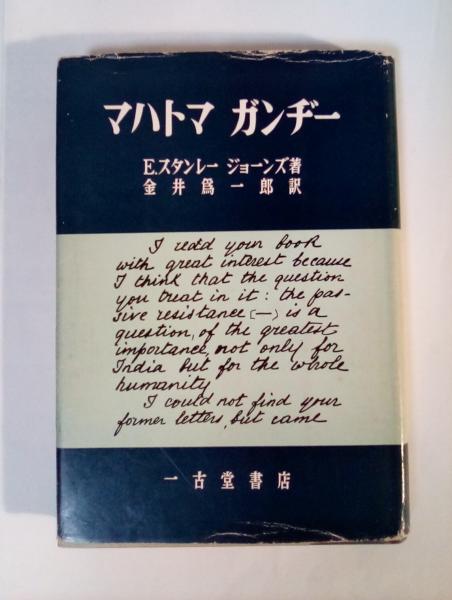 マハトマ ガンヂー
E.スタンレー ジョーンズ著
金井爲一郎訳
I read your book
with great interest because
I think that the question
you treat in it: the pas-
sive resistance (—) is a
question, of the greatest
importance, not only for
India but for the whole
humanity
I could not find your
former letters, but came
一古堂書店